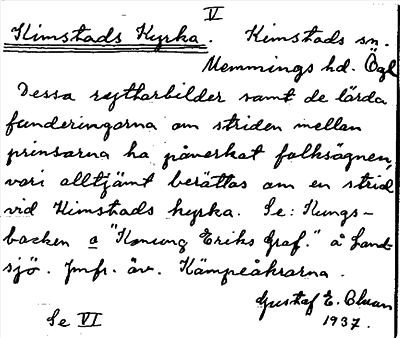 V
Kimstads Kyrka. Kimstads sn.
Memmings hd. Ögl
Dessa ryttarbilder samt de lärda
funderingarna om striden mellan
prinsarna ha påverkat folksägnen,
vari alltjämt berättas om en strid
vid Kimstads kyrka. Se: Kungs-
backen o "Konung Eriks Graf." å Land-
sjö. Jmfr. äv. Kämpeåkrarna.
Gustaf E.
Se VI 1937.